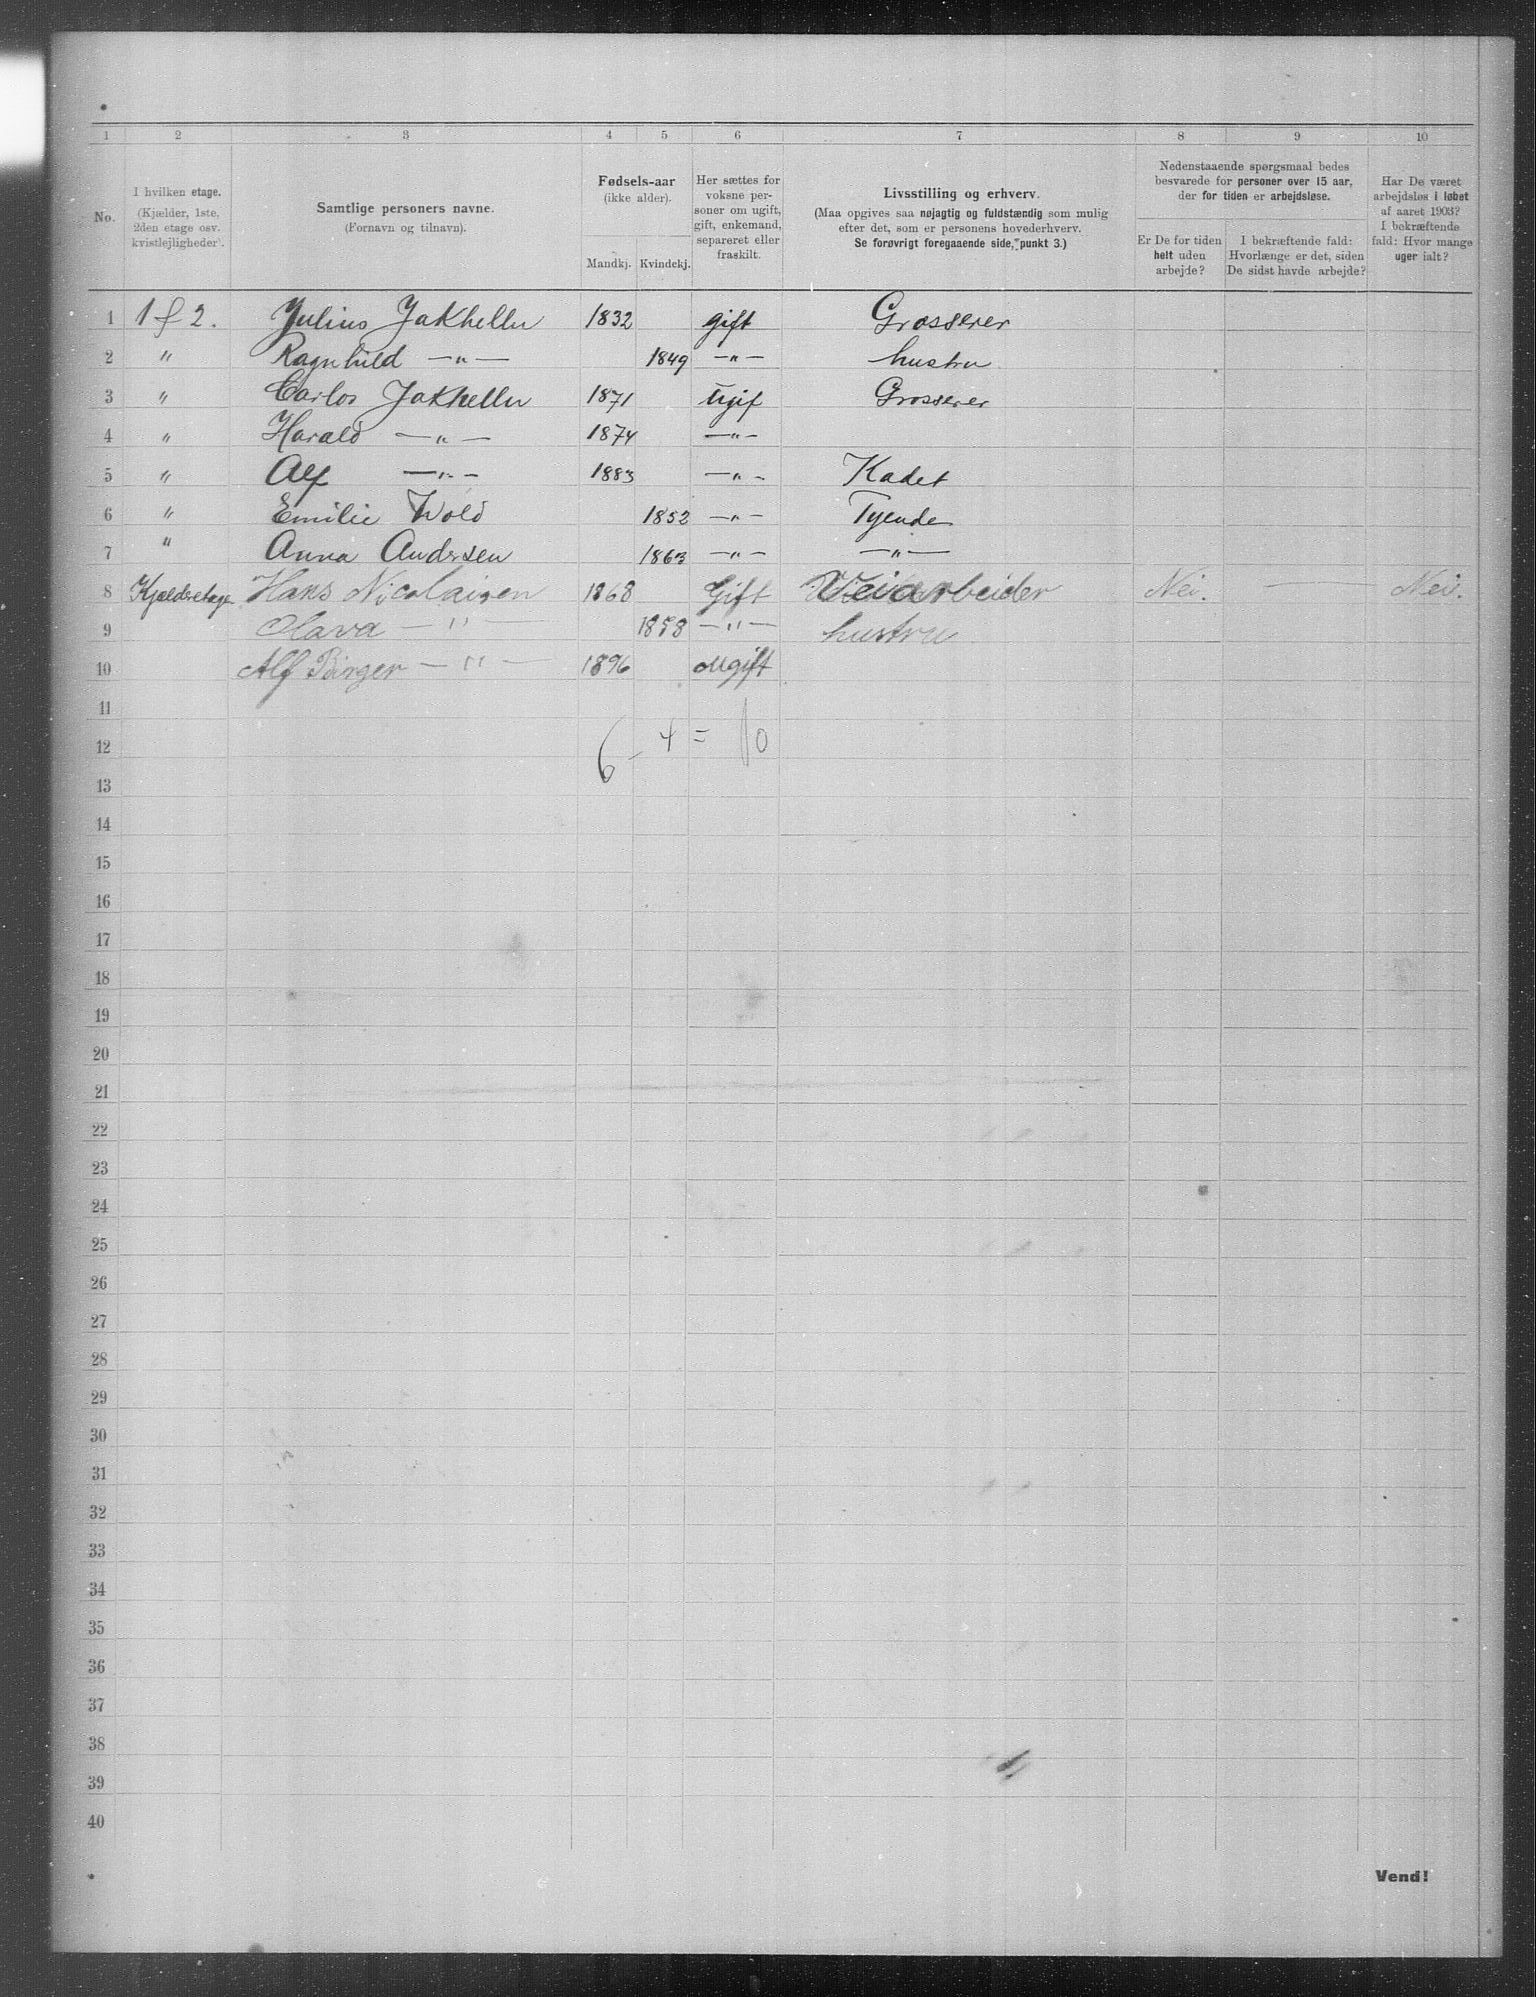 1 2 3 4 5 6 7 8 9 10
No.
I hvilken etage.
(Kjælder, 1ste,
2den etage osv.
kvistlejligheder).
Samtlige personers navne.
(Fornavn og tilnavn).
Fødsels-aar
(ikke alder).
Mandkj. Kvindekj.
Her sættes for
voksne per-
soner om ugift,
gift, enkemand,
separeret eller
fraskilt.
Livsstilling og erhverv.
(Maa opgives saa nøjagtig og fuldstændig som mulig
efter det, som er personens hovederhverv.
Se forøvrigt foregaaende side, punkt 3.)
Nedenstaaende spørgsmaal bedes
besvarede for personer over 15 aar,
der for tiden er arbejdsløse.
Er De for tiden
helt uden
arbejde?
I bekræftende fald:
Hvorlænge er det, siden
De sidst havde arbejde?
Har De været
arbejdsløs i løbet
af aaret 1903?
I bekræftende
fald: Hvor mange
uger ialt?
1 1 f 2. Julius Jakhelln 1832 gift Grosserer
2 " Ragnhild —"— 1849 —"— hustru
3 " Carlos Jakhelln 1871 Ugif Grosserer
4 " Harald —"— 1874 —"—
5 " Alf —"— 1883 —"— Kadet
6 " Emilie Wold 1852 —"— Tyende
7 " Anna Andersen 1863 —"— —"—
8 Kjælderetage Hans Nicolaisen 1868 Gift Veiarbeider Nei. — Nei.
9 Olava —"— 1858 —"— hustru
10 Alf Birger —"— 1896 Ugift
11
12 6 - 4 = 10
13
14
15
16
17
18
19
20
21
22
23
24
25
26
27
28
29
30
31
32
33
34
35
36
37
38
39
40
Vend!